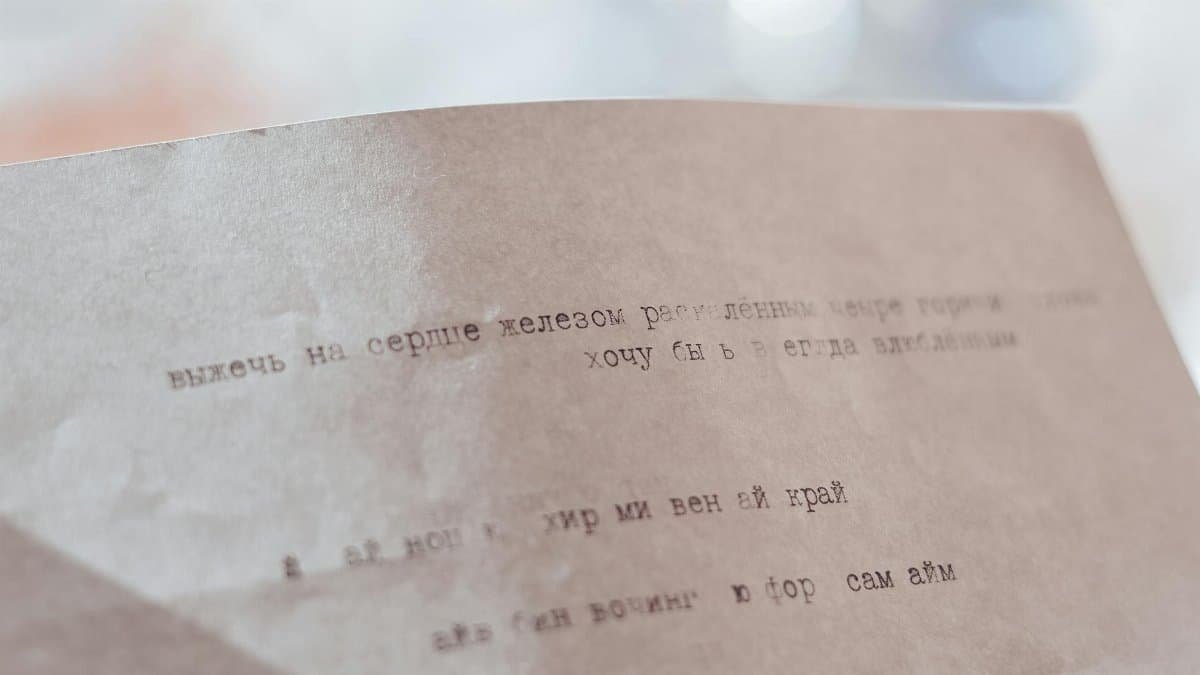 выжечь на сердце железом раскалённым
хочу быть всегда влюблённым
ай хир ми вен ай край
айв бин вочинг ю фор сам айм